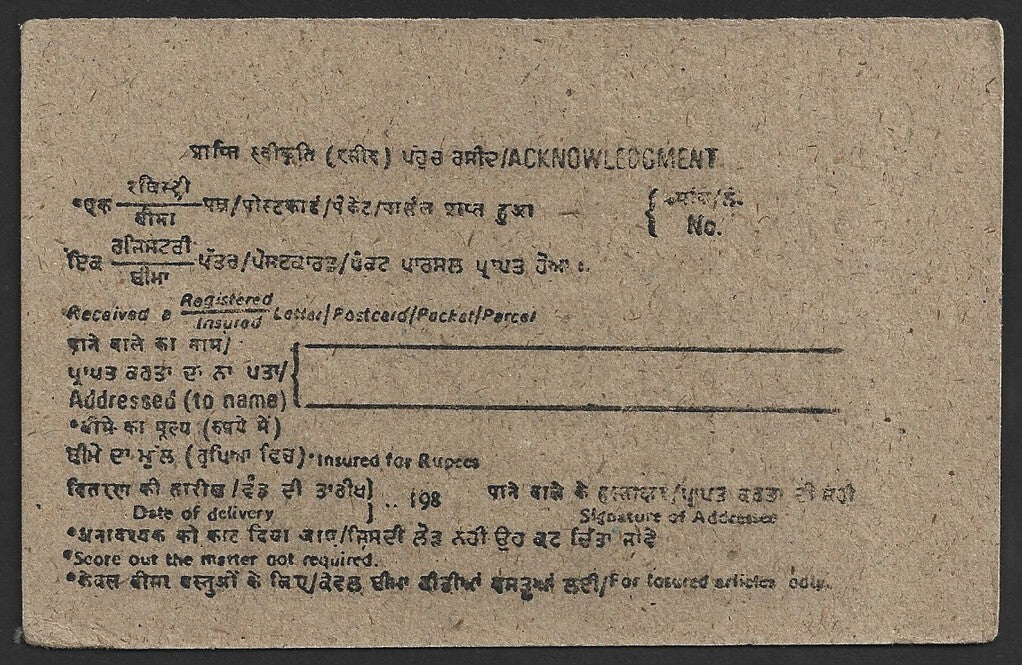 प्राप्ति स्वीकृति (रसीद) ਪਹੁਚ ਰਸੀਦ/ACKNOWLEDGMENT
*एक रजिस्ट्री/बीमा पत्र/पोस्टकार्ड/पैकेट/पार्सल प्राप्त हुआ { क्रमांक/ਨੰ. No.
ਇਕ ਰਜਿਸਟਰੀ/ਬੀਮਾ ਪੱਤਰ/ਪੋਸਟਕਾਰਡ/ਪੈਕਟ ਪਾਰਸਲ ਪ੍ਰਾਪਤ ਹੋਆ।
Received a Registered/Insured Letter/Postcard/Packet/Parcel
पाने वाले का नाम/
ਪ੍ਰਾਪਤ ਕਰਤਾ ਦਾ ਨਾ ਪਤਾ/
Addressed (to name)
*बीमे का मूल्य (रुपये में)
ਬੀਮੇ ਦਾ ਮੁੱਲ (ਰੁਪਿਆ ਵਿਚ) *Insured for Rupees
वितरण की तारीख/ਵੰਡ ਦੀ ਤਾਰੀਖ} .. 198 पाने वाले के हस्ताक्षर/ਪ੍ਰਾਪਤ ਕਰਤਾ ਦੀ ਸਹੀ
Date of delivery Signature of Addressee
*अनावश्यक को काट दिया जाए/ਜਿਸਦੀ ਲੋੜ ਨਹੀ ਉਹ ਕਟ ਦਿੱਤਾ ਜਾਵੇ
*Score out the matter not required.
*केवल बीमा वस्तुओं के लिए/ਕੇਵਲ ਬੀਮਾ ਕੀਤੀਆਂ ਵਸਤੂਆਂ ਲਈ/For insured articles only.